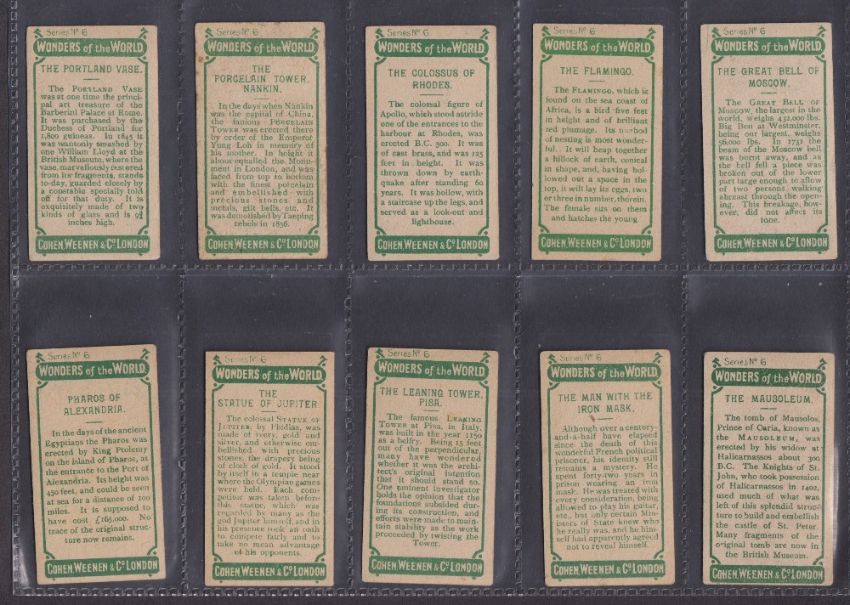 Series Nº 6
WONDERS of the WORLD
THE PORTLAND VASE.
The PORTLAND VASE
was at one time the princi-
pal art treasure of the
Barberini Palace at Rome.
It was purchased by the
Duchess of Portland for
1,800 guineas. In 1845 it
was wantonly smashed by
one William Lloyd at the
British Museum, where the
vase, marvellously restored
from its fragments, stands
to-day, guarded closely by
a constable specially told
off for that duty. It is
exquisitely made of two
kinds of glass and is 9¾
inches high.
COHEN, WEENEN & Cº LONDON
Series Nº 6
WONDERS of the WORLD
THE
PORCELAIN TOWER,
NANKIN.
In the days when Nankin
was the capital of China,
the famous PORCELAIN
TOWER was erected there
by order of the Emperor
Yung-Loh in memory of
his mother. In height it
about equalled the Monu-
ment in London, and was
faced from top to bottom
with the finest porcelain
and embellished with
precious stones and
metals, gilt bells, etc. It
was demolished by Taeping
rebels in 1856.
COHEN, WEENEN & Cº LONDON
Series Nº 6
WONDERS of the WORLD
THE COLOSSUS OF
RHODES.
The colossal figure of
Apollo, which stood astride
one of the entrances to the
harbour at Rhodes, was
erected B.C. 300. It was
of cast brass, and was 125
feet in height. It was
thrown down by earth-
quake after standing 60
years. It was hollow, with
a staircase up the legs, and
served as a look-out and
lighthouse.
COHEN, WEENEN & Cº LONDON
Series Nº 6
WONDERS of the WORLD
THE FLAMINGO.
The FLAMINGO, which is
found on the sea coast of
Africa, is a bird five feet
in height and of brilliant
red plumage. Its method
of nesting is most wonder-
ful. It will heap together
a hillock of earth, conical
in shape, and, having hol-
lowed out a space in the
top, it will lay its eggs, two
or three in number, therein.
The female sits on them
and hatches the young
COHEN, WEENEN & Cº LONDON
Series Nº 6
WONDERS of the WORLD
THE GREAT BELL OF
MOSCOW.
The GREAT BELL OF
Moscow, the largest in the
world, weighs 432,000 lbs.
Big Ben at Westminster,
being our largest, weighs
36,000 lbs. In 1737 the
beam of the Moscow bell
was burnt away, and as
the bell fell a piece was
broken out of the lower
part large enough to allow
of two persons walking
abreast through the open-
ing. This breakage, how-
ever, did not affect its
tone.
COHEN, WEENEN & Cº LONDON
Series Nº 6
WONDERS of the WORLD
PHAROS OF
ALEXANDRIA.
In the days of the ancient
Egyptians the Pharos was
erected by King Ptolemy
on the island of Pharos, at
the entrance to the Port of
Alexandria. Its height was
450 feet, and could be seen
at sea for a distance of 100
miles. It is supposed to
have cost £165,000. No
trace of the original struc-
ture now remains.
COHEN, WEENEN & Cº LONDON
Series Nº 6
WONDERS of the WORLD
THE
STATUE OF JUPITER
The colossal STATUE OF
JUPITER, by Phidias, was
made of ivory, gold and
silver, and otherwise em-
bellished with precious
stones, the drapery being
of cloth of gold. It stood
by itself in a temple near
where the Olympian games
were held. Each com-
petitor was taken before
this statue, which was
regarded by many as the
god Jupiter himself, and in
his presence took an oath
to compete fairly and to
take no mean advantage
of his opponents.
COHEN, WEENEN & Cº LONDON
Series Nº 6
WONDERS of the WORLD
THE LEANING TOWER,
PISA.
The famous LEANING
TOWER at Pisa, in Italy,
was built in the year 1150
as a belfry. Being 15 feet
out of the perpendicular,
many have wondered
whether it was the archi-
tect's original intention
that it should stand so.
One eminent investigator
holds the opinion that the
foundations subsided dur-
ing its construction, and
efforts were made to main-
tain stability as the work
proceeded by twisting the
Tower.
COHEN, WEENEN & Cº LONDON
Series Nº 6
WONDERS of the WORLD
THE MAN WITH THE
IRON MASK.
Although over a century-
and-a-half have elapsed
since the death of this
wonderful French political
prisoner, his identity still
remains a mystery. He
spent forty-two years in
prison wearing an iron
mask. He was treated with
every consideration, being
allowed to play his guitar,
etc., but only certain Min-
isters of State knew who
he really was, and he him-
self had apparently agreed
not to reveal himself.
COHEN, WEENEN & Cº LONDON
Series Nº 6
WONDERS of the WORLD
THE MAUSOLEUM.
The tomb of Mausolos,
Prince of Caria, known as
the MAUSOLEUM, was
erected by his widow at
Halicarnassos about 300
B.C. The Knights of St.
John, who took possession
of Halicarnassos in 1402,
used much of what was
left of this splendid struc-
ture to build and embellish
the castle of St. Peter.
Many fragments of the
original tomb are now in
the British Museum.
COHEN, WEENEN & Cº LONDON